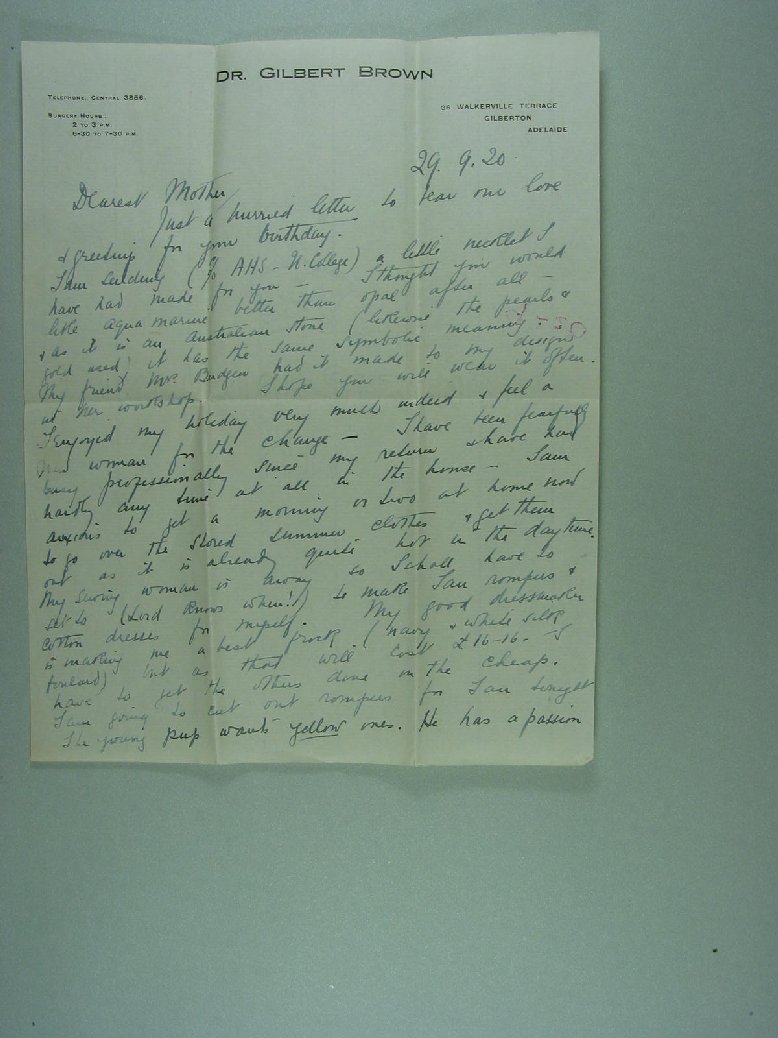 DR. GILBERT BROWN
TELEPHONE, CENTRAL 3856.
SURGERY HOURS:
2 TO 3 P.M.
6-30 TO 7-30 P.M.
WALKERVILLE TERRACE
GILBERTON
ADELAIDE
29. 9. 20.
Dearest Mother
Just a hurried letter to bear our love
& greeting for your birthday.
I am sending (% AHS - College) a little necklet I
have had made for you — I thought you would
like aquamarine better than opal after all —
& as it is an Australian stone (likewise the pearls &
gold used) it has the same symbolic meaning.
My friend Mrs. Budgen had it made to my design
at her workshop. I hope you will wear it often.
I enjoyed my holiday very much indeed & feel a
new woman for the change — I have been fearfully
busy professionally since my return & have had
hardly any time at all in the house — I am
anxious to get a morning or two at home now
to go over the stored summer clothes & get them
out as it is already quite hot in the daytime.
My sewing woman is away so I shall have to
set to (Lord knows when!) to make Ian rompers &
cotton dresses for myself. My good dressmaker
is making me a best frock (navy & white silk
foulard) but as that will cost £16-16-
have to get the others done on the cheap.
I am going to cut out rompers for Ian tonight
The young pup wants yellow ones. He has a passion